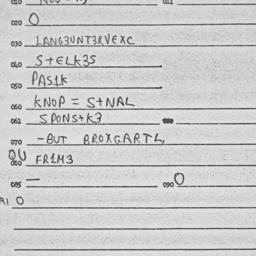 020 O
030 LANG3UNT3RVEXC
040 S+ELK3S
050 PAS1K
060 KNOP = S+NAL
061 SPONS+K3
070 -BUT BROXGARTL,
QU 080 FR1M3
085 — 090 O
AI O